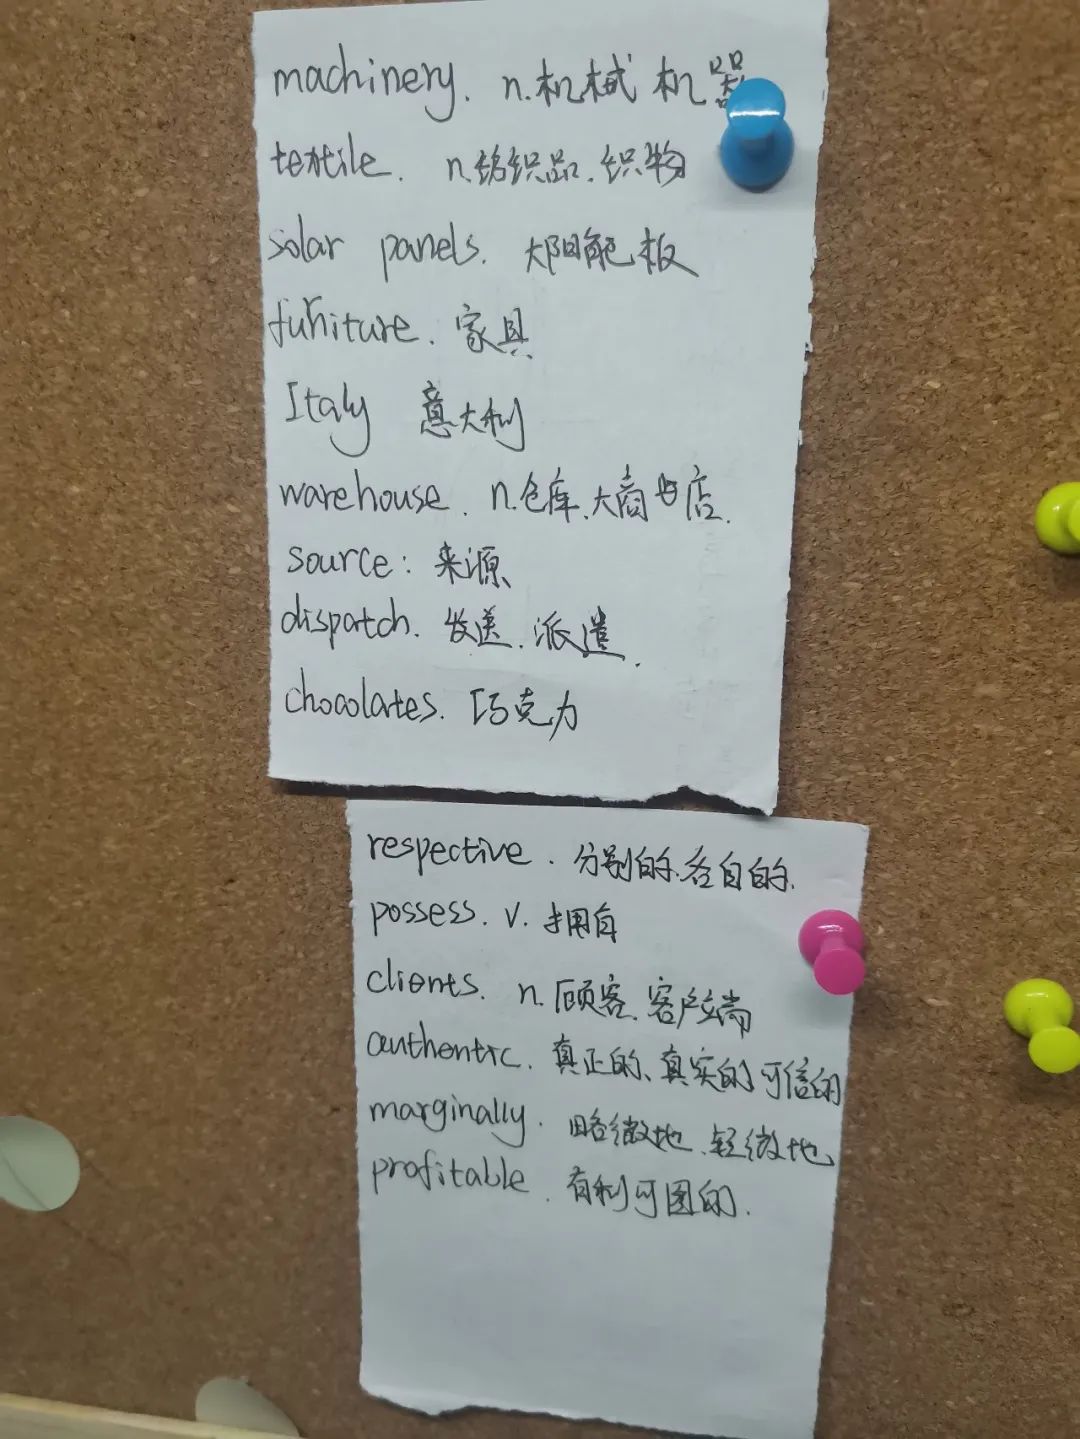 machinery. n.机械 机器
textile. n.纺织品.织物
solar panels. 太阳能板
furniture. 家具
Italy 意大利
warehouse. n.仓库.大商店.
source: 来源
dispatch. 发送.派遣.
chocolates. 巧克力
respective. 分别的.各自的.
possess. v. 拥有
clients. n.顾客.客户端
authentic. 真正的、真实的 可信的
marginally. 略微地.轻微地
profitable. 有利可图的.